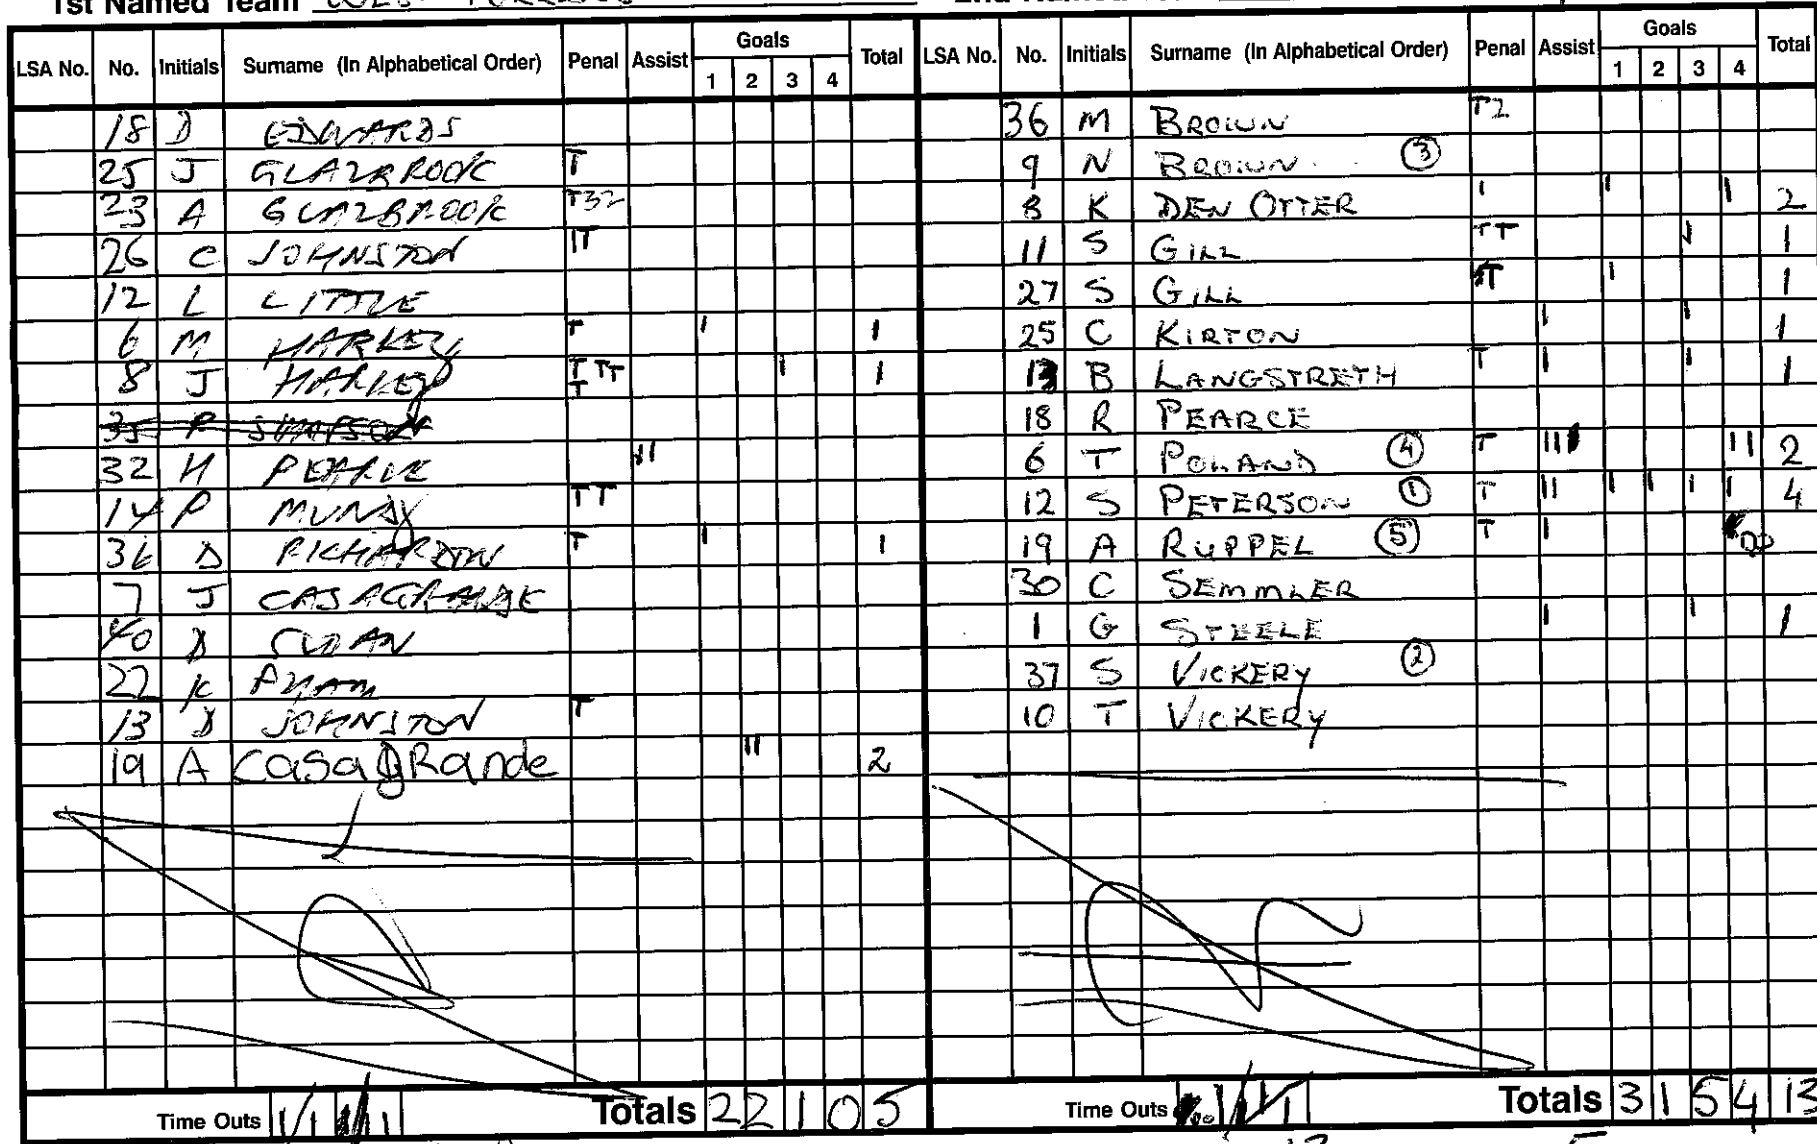 1st Named Team
LSA No. No. Initials Surname (In Alphabetical Order) Penal Assist Goals 1 2 3 4 Total
18 D EDWARDS
25 J GLAZBROOK T
23 A GLAZBROOK T32
26 C JOHNSTON IT
12 L LITTLE
6 M HARLEY T I I
8 J HARLEY T TT T I I
35 P SIMPSON
32 H PEARCE II
14 P MUNDY TT
36 D RICHARDSON T I I
7 J CASAGRANDE
40 D SLOAN
22 K
13 D JOHNSTON T
19 A CasagRande II 2
Time Outs
Totals 2 2 1 0 5
LSA No. No. Initials Surname (In Alphabetical Order) Penal Assist Goals 1 2 3 4 Total
36 M BROWN T2
9 N BROWN 3
8 K DEN OTTER I I I 2
11 S GILL TT I 1
27 S GILL T I 1
25 C KIRTON I I 1
13 B LANGSTRETH T I I 1
18 R PEARCE
6 T POLAND 4 T III II 2
12 S PETERSON 1 T II I I I I 4
19 A RUPPEL 5 T I
30 C SEMMLER
1 G STEELE I I 1
37 S VICKERY 2
10 T VICKERY
Time Outs
Totals 3 1 5 4 13